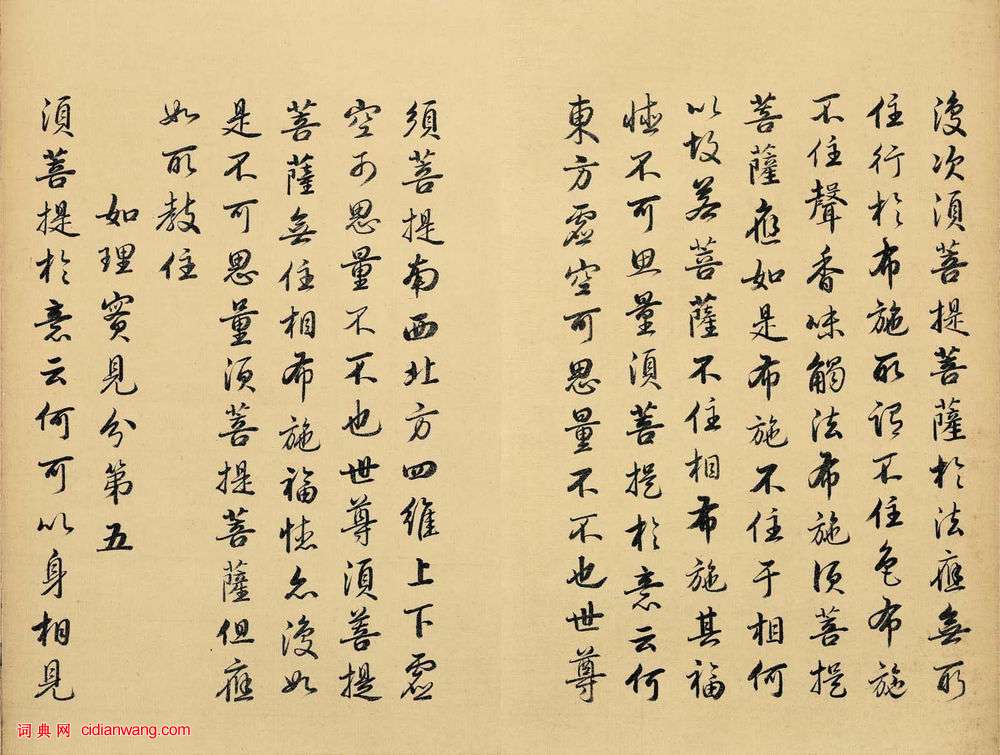 復次須菩提菩薩於法應無所
住行於布施所謂不住色布施
不住聲香味觸法布施須菩提
菩薩應如是布施不住于相何
以故若菩薩不住相布施其福
德不可思量須菩提於意云何
東方虛空可思量不不也世尊
須菩提南西北方四維上下虛
空可思量不不也世尊須菩提
菩薩無住相布施福德亦復如
是不可思量須菩提菩薩但應
如所教住
如理實見分第五
須菩提於意云何可以身相見
词典网 cidianwang.com